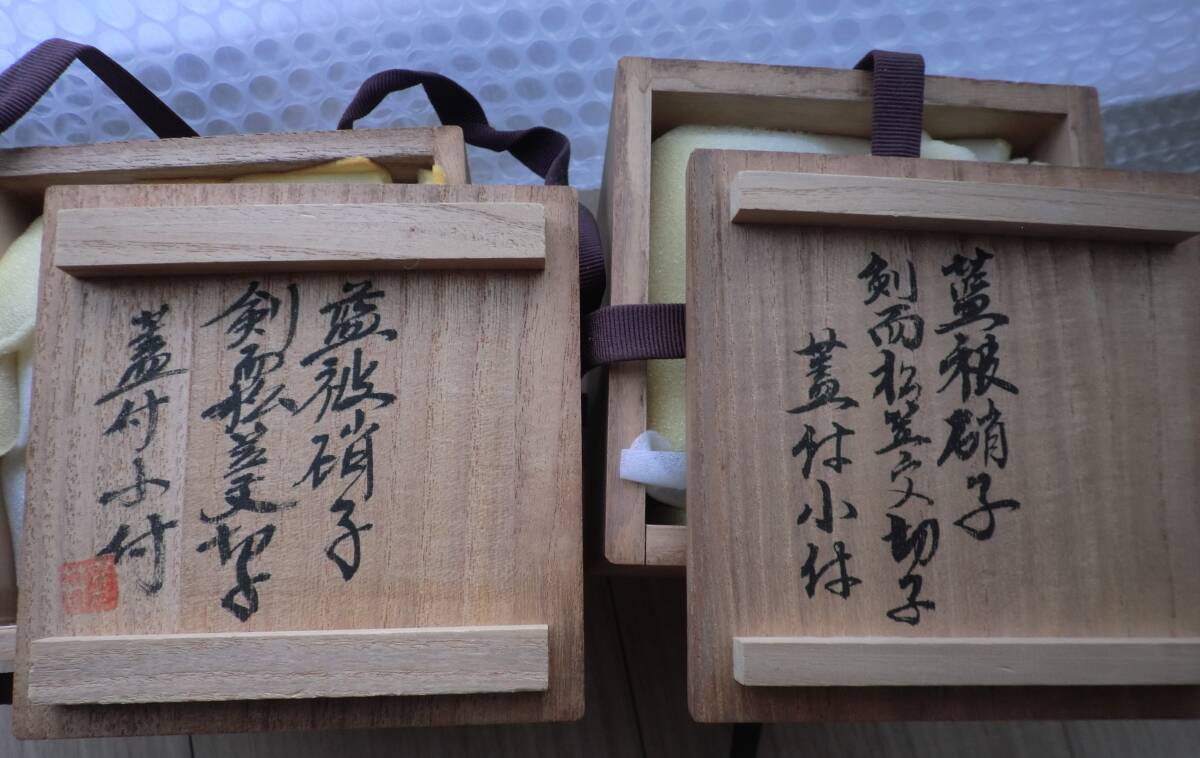 藍被硝子
剣而松笠文切子
蓋付小付
藍被硝子
剣而松笠文切子
蓋付小付